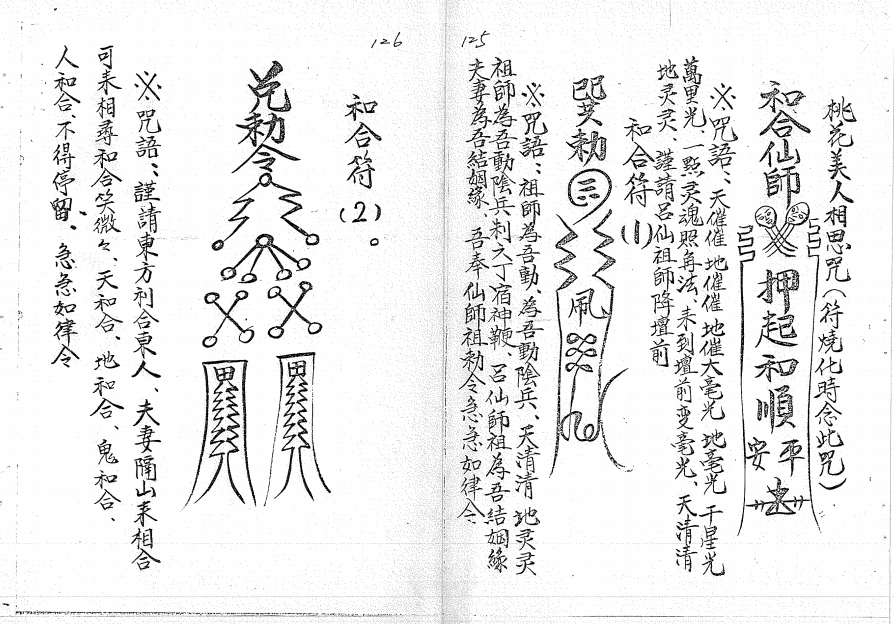 125
桃花美人相思咒(符燒化時念此咒)
和合仙師
押起和順
平安
※咒語:、天催催 地催催 地催大毫光 地毫光 千星光
萬里光、一點灵魂照身法、未到壇前变毫光、天清清
地灵灵、謹請呂仙祖師降壇前
和合符(1)
勅
※咒語:祖師為吾動、為吾動陰兵、天清清 地灵灵
祖師為吾動陰兵利六丁宿神鞭、呂仙師祖為吾結姻緣
夫妻為吾結姻緣、吾奉仙師祖勅令急急如律令
126
和合符(2)。
勅令
※咒語:、謹請東方利合東人、夫妻隔山来相合
可来相尋和合笑微々、天和合、地和合、鬼和合、
人和合、不得停留、急急如律令